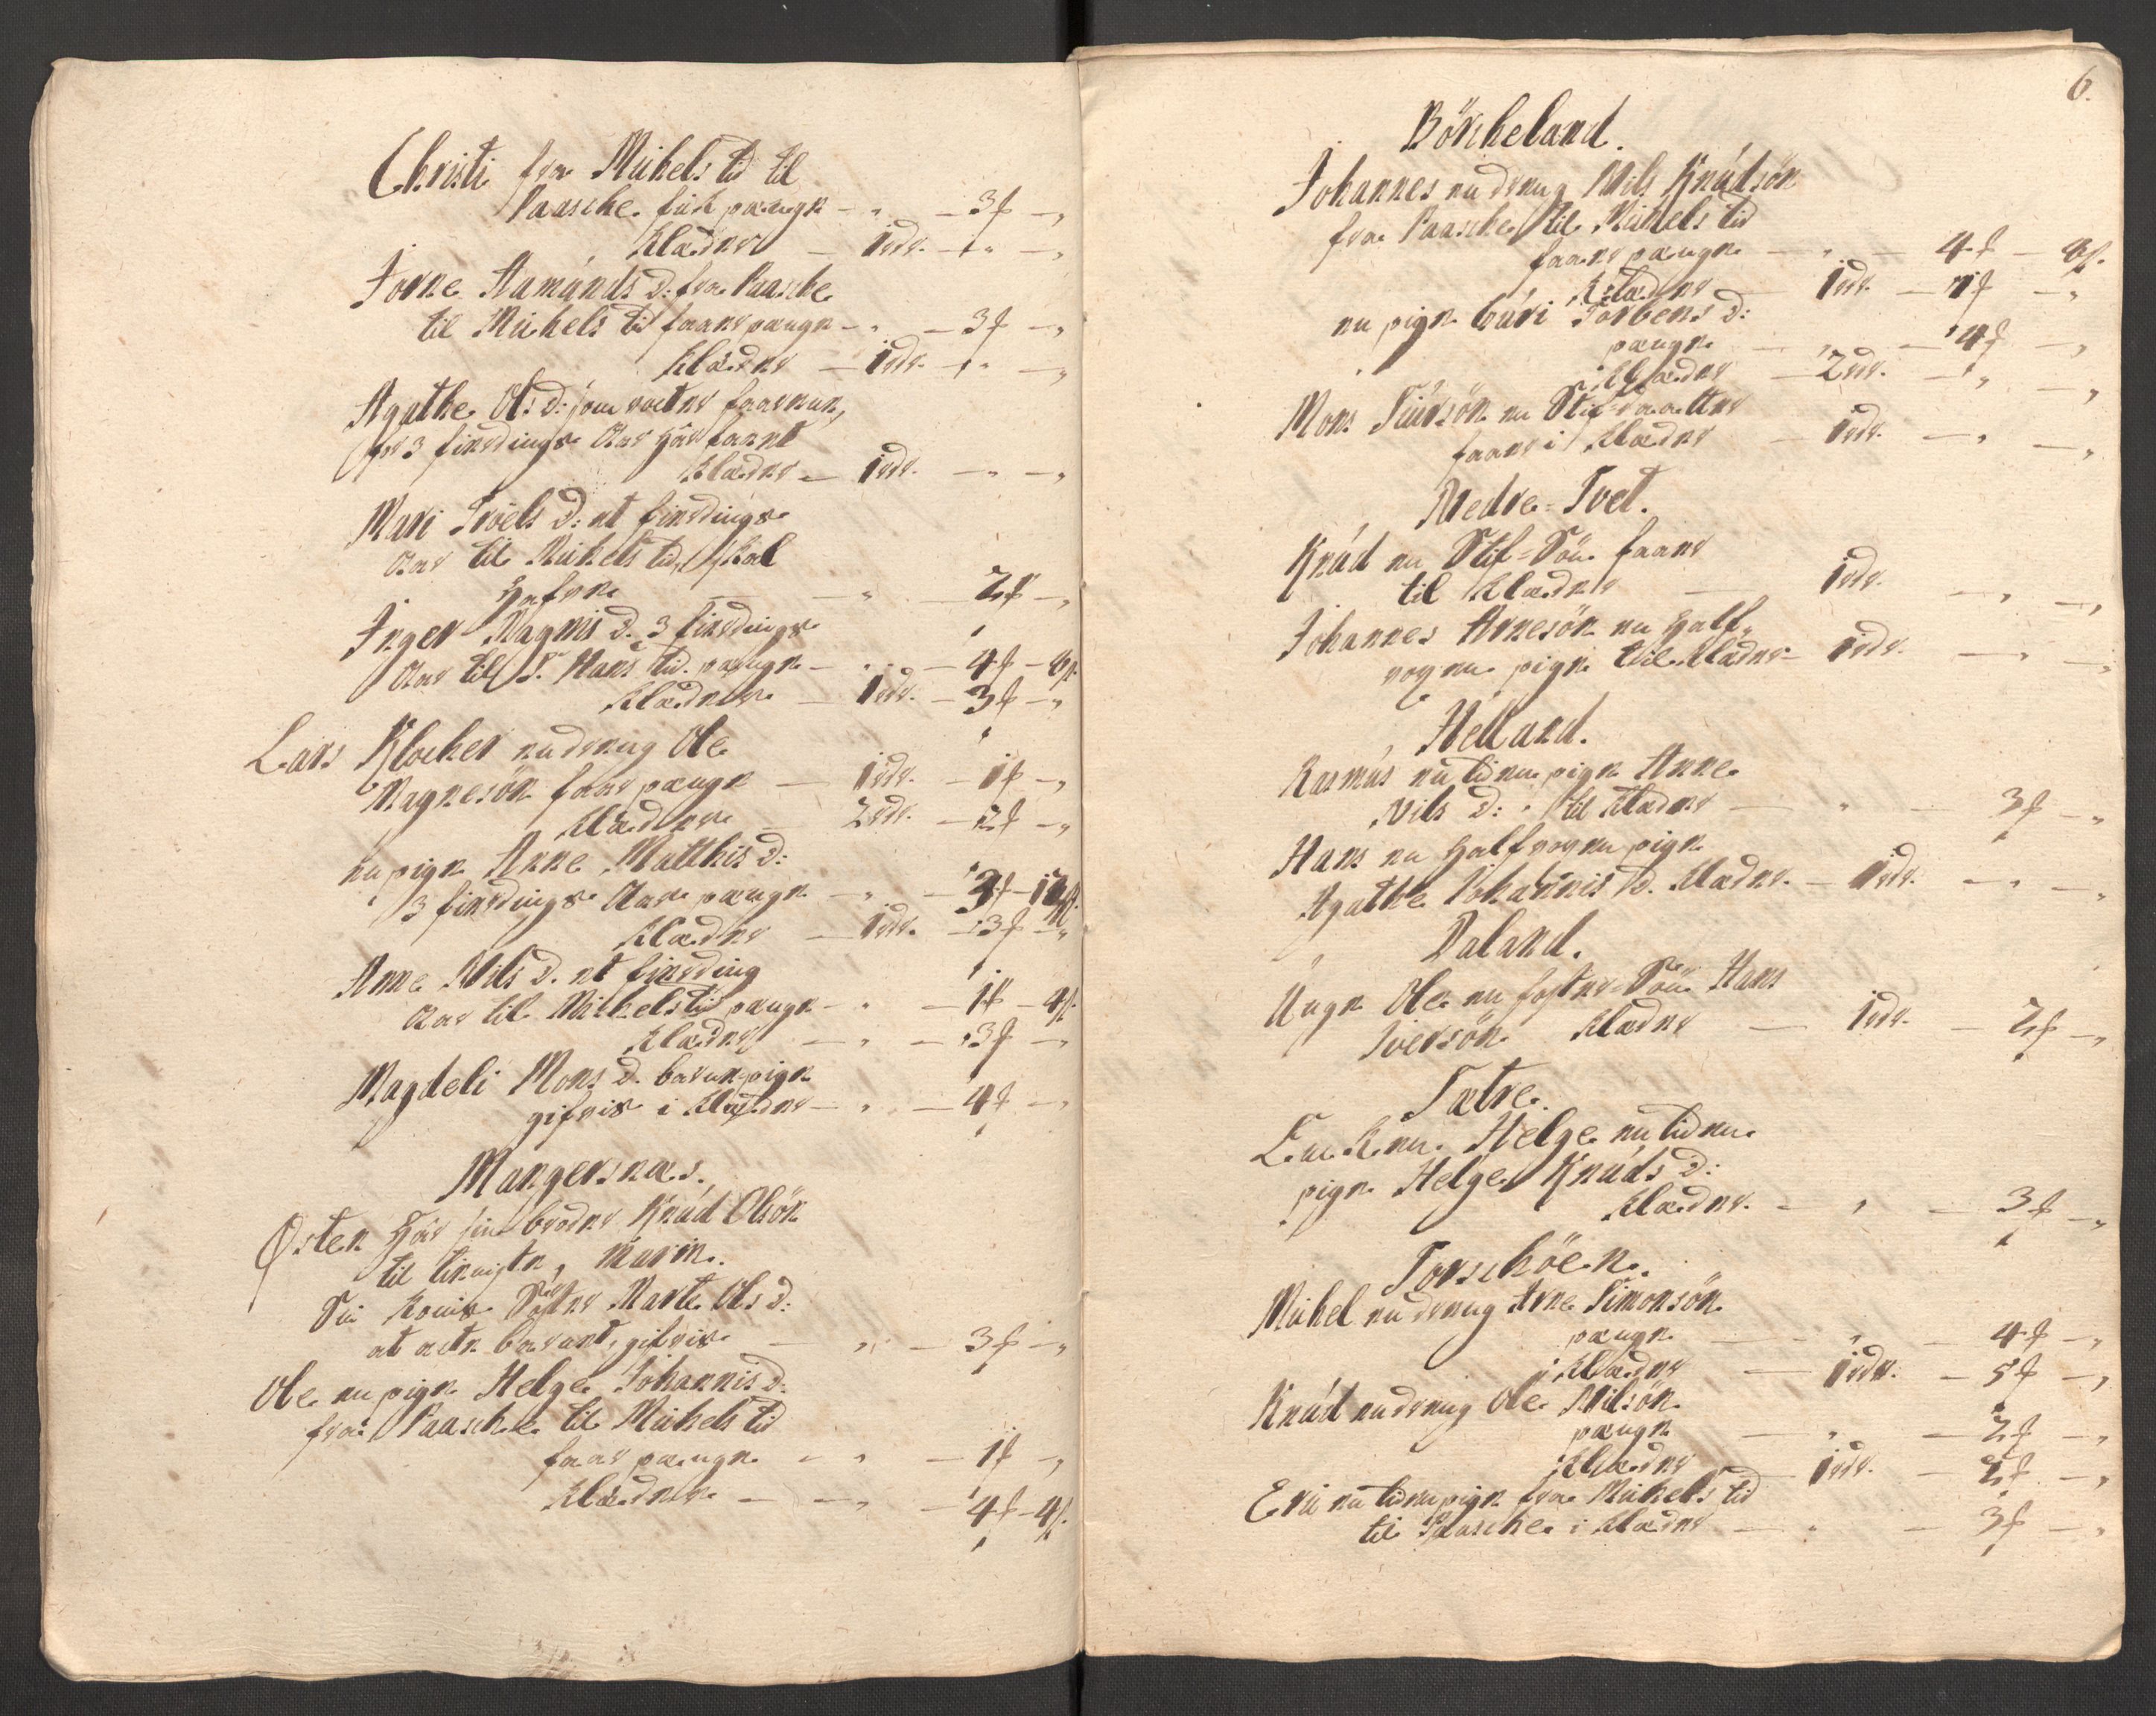 Christi fra Michels tid til
Paasche fich penge - „ - 3 f - „
Klæder - 1 rdr. - „ - „
Jorne Aamúnds d: fra Paasche
til Michels tid faar penge - „ - 3 f - „
Klæder - 1 rdr. - „ - „
Agathe Ols d: som
for 3 fierdings Aar
Klæder - 1 rdr. - „ - „
Mari Troels d: et fierdings
Aar til Michels tid, skal
Hafve - „ - 2 f - „
Inger Magnis d. 3 fierdings
Aar til S. Hans tid. penge - „ - 4 f - 8 ß.
Klæder - 1 rdr. - 3 f - „
Lars Klocher en dreng Ole
Magnesön faar penge - 1 rdr. - 1 f - „
Klæder - 2 rdr. - 2 f - „
en pige Anne Matthis d:
3 fierdings Aar penge - „ - 3 f - 12 ß.
Klæder - 1 rdr. - 3 f - „
Anne Nils d. et fierding
Aar til Michels tid penge - „ - 1 f - 4 ß.
Klæder - „ - 3 f - „
Magdeli Mons d. barne pige
gifvis i Klæder - „ - 4 f - „
Mangersnæs.
Østen Har sin broder Knúd Olsön
til tieniste,
Sin Konis Søster Marte Ols d:
at acte barnet, gifvis - „ - 3 f - „
Ole en pige Helge Johannis d:
fra Paasche til Michels tid
faar penge - „ - 1 f - „
Klæder - „ - 4 f - 4 ß.
6.
Börcheland.
Johannes en dreng Nils Knúdsön
fra Paasche til Michels tid
faar penge - „ - 4 f - 8 ß.
Klæder - 1 rdr. - 1 f - „
en pige Gúri Torbens d:
penge - „ - 4 f - „
Klæder - 2 rdr. - „ - „
Mons Siúrsön en Stif-daatter
faar i Klæder - 1 rdr. - „ - „
Nedre-Tvet.
Knúd en Stif-Sön faar
til Klæder - 1 rdr. - „ - „
Johannes Arnesön en Half
voxen pige til Klæder - 1 rdr. - „ - „
Helland.
Rasmús en liden pige Anne
Nils d: til Klæder - „ - 3 f - „
Hans en Half voxen pige
Agathe Johannis d. Klæder. - 1 rdr. - „ - „
Daland.
Unge Ole en foster-Sön Hans
Iversön Klæder - 1 rdr. - 2 f - „
Sætre.
Helge en liden
pige Helge Knúds d:
Klæder. - „ - 3 f - „
Torschöen.
Michel en dreng Arne Simonsön
penge - „ - 4 f - „
i Klæder - 1 rdr. - 5 f - „
Knúd en dreng Ole Nilsön
penge - „ - 2 f - „
Klæder - 1 rdr. - 2 f - „
Erii en liden pige fra Michels tid
til Paasche i Klæder - „ - 3 f - „